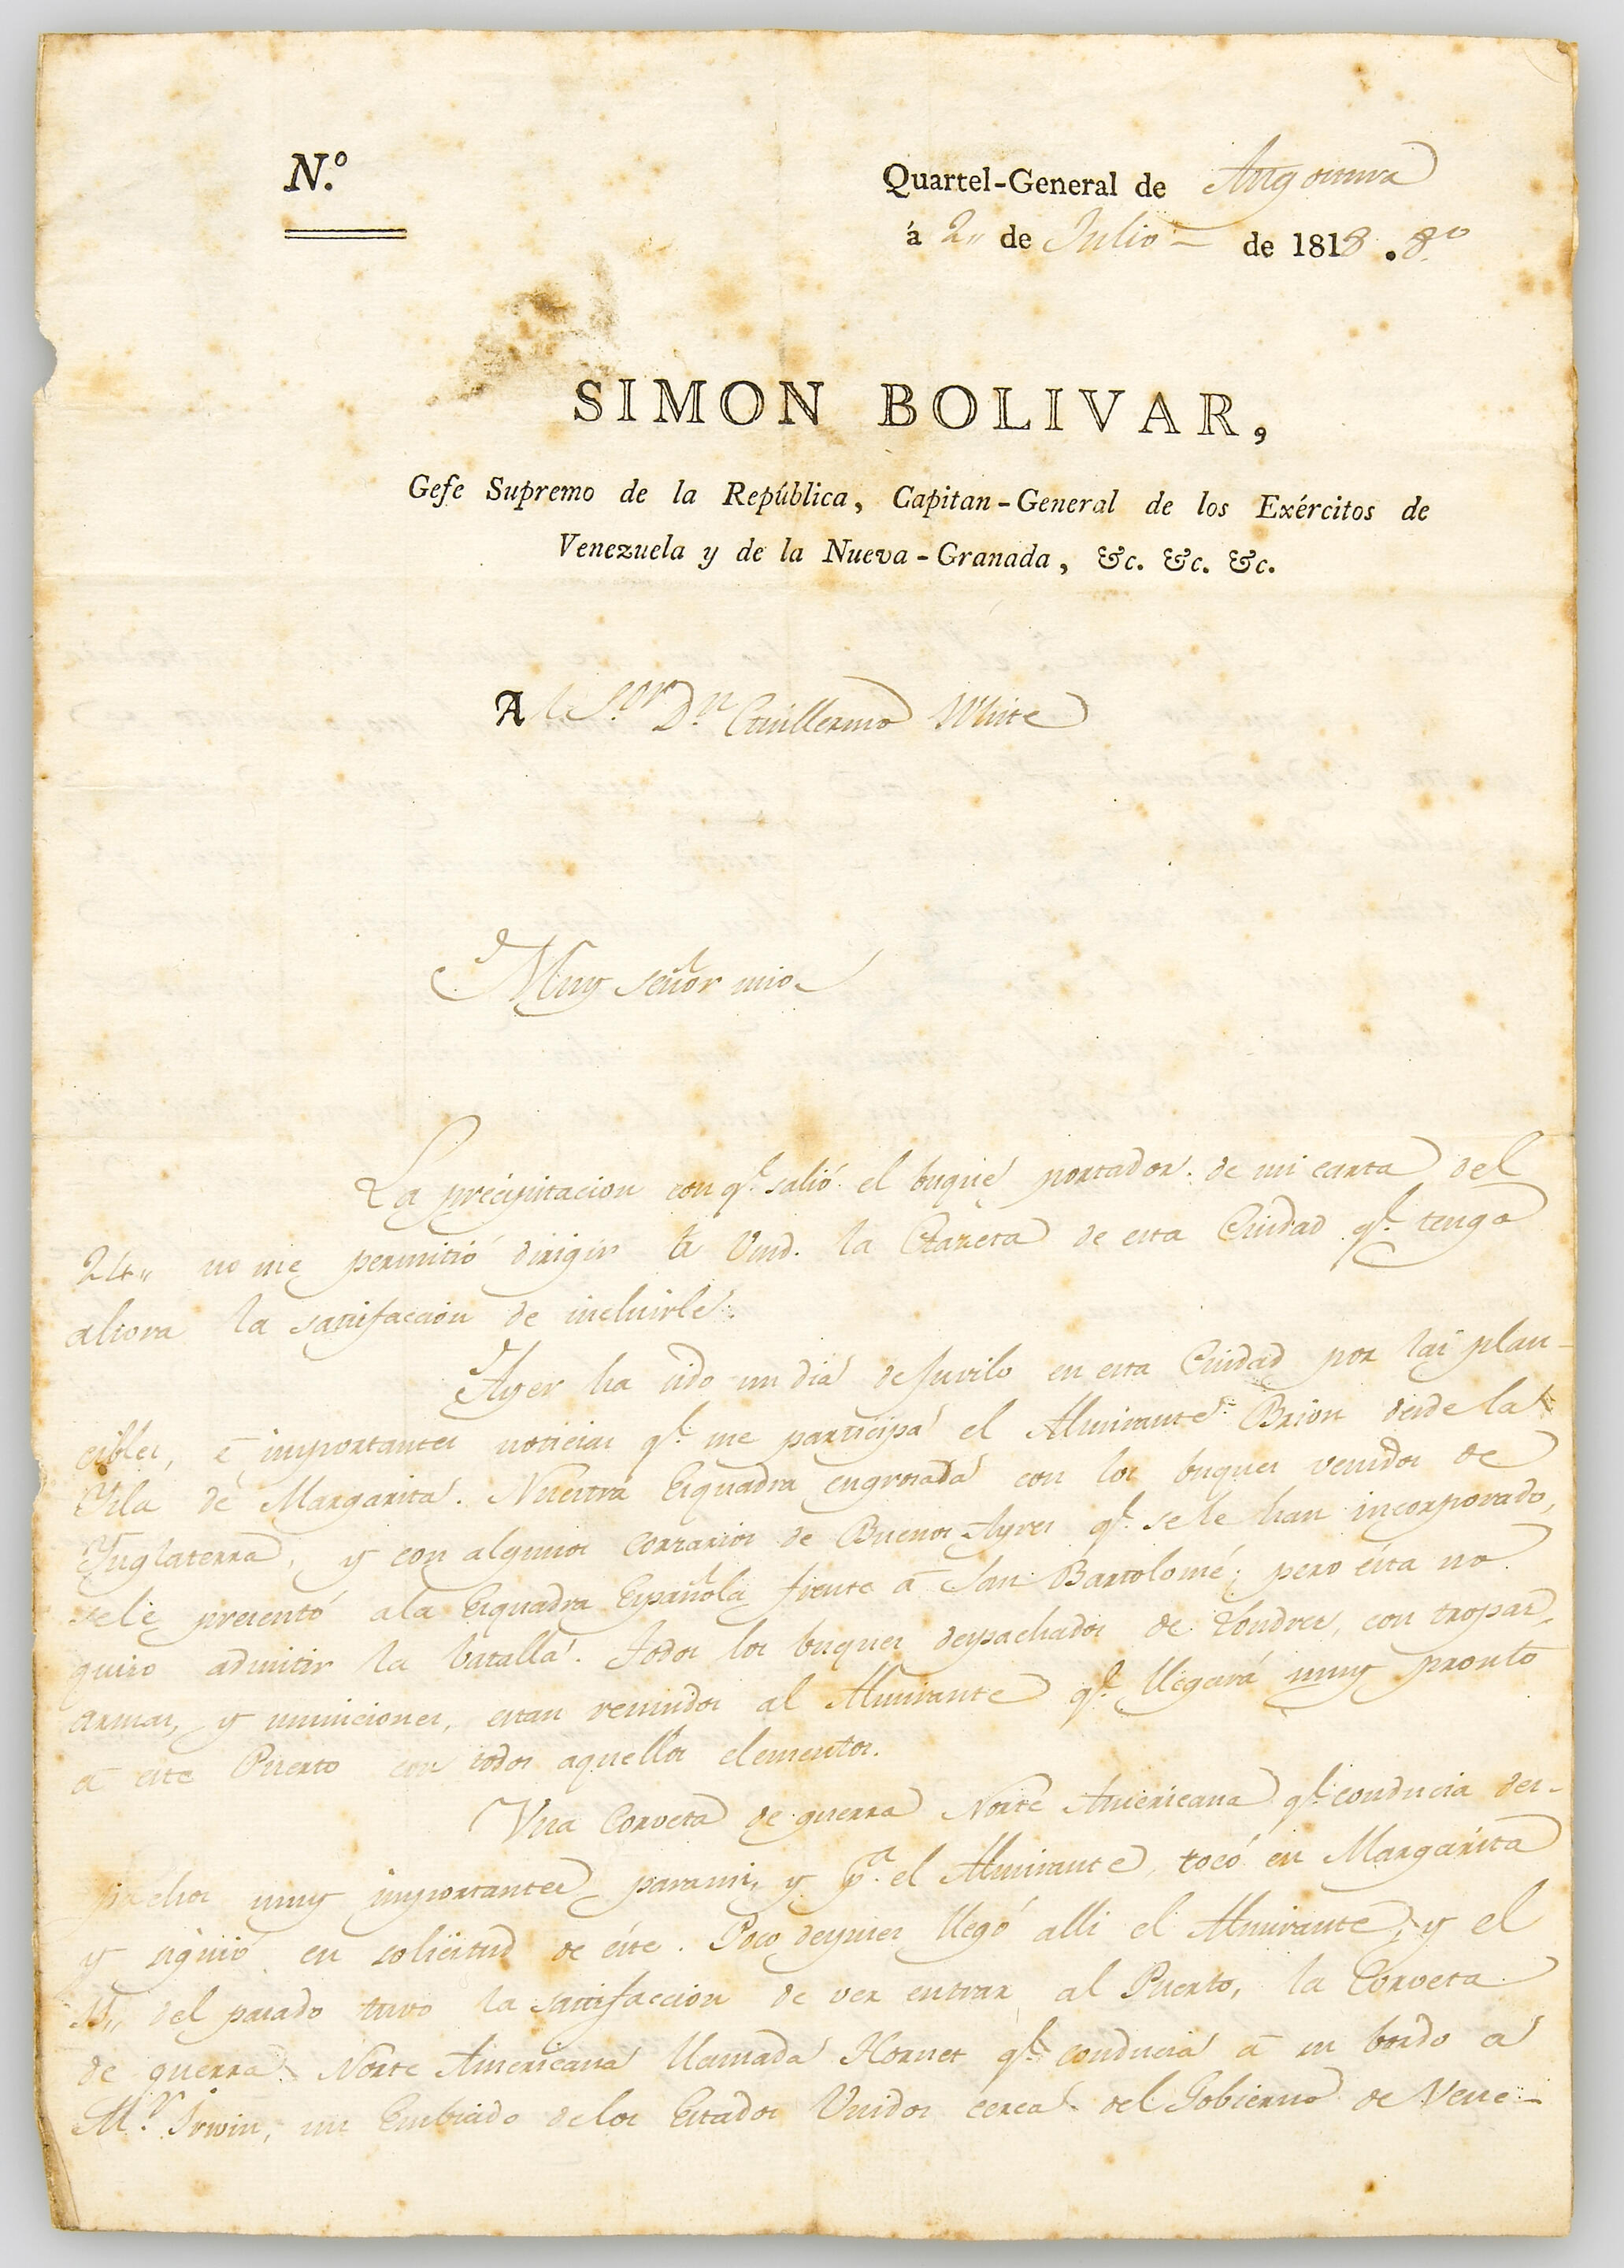 N.º
Quartel-General de Angostura
á 2,, de Julio de 1818. 8º
SIMON BOLIVAR,
Gefe Supremo de la República, Capitan-General de los Exércitos de
Venezuela y de la Nueva-Granada, &c. &c. &c.
Al Sor. Dn. Guillermo White
Muy señor mio
La precipitacion con q.e salió el buque portador de mi carta del
24,, no me permitió dirigir á Vmd. la Gazeta de esta Ciudad q.e tengo
ahora la satisfaccion de incluirle.
Ayer ha sido un dia de Juvilo en esta Ciudad por las plau-
cibles, é importantes noticias q.e me participa el Almirante Brion desde la
Ysla de Margarita. Nuestra Esquadra engrosada con los buques venidos de
Ynglaterra, y con algunos corsarios de Buenos Ayres q.e se le han incorporado,
se le presentó a la Esquadra Española frente á San Bartolomé; pero ésta no
quiso admitir la batalla. Todos los buques despachados de Londres, con tropas,
armas, y municiones, estan reunidos al Almirante q.e llegará muy pronto
á este Puerto con todos aquellos elementos.
Una Corveta de guerra Norte Americana q.e conducia des-
pachos muy importantes para mi, y p.a el Almirante, tocó en Margarita
y siguió en solicitud de éste. Poco despues llegó alli el Almirante, y el
del pasado tuvo la satisfaccion de ver entrar al Puerto, la Corveta
de guerra Norte Americana llamada Hornet q.e conducia á su bordo a
Mr. Irwin, un Embiado de los Estados Unidos cerca del Gobierno de Vene-